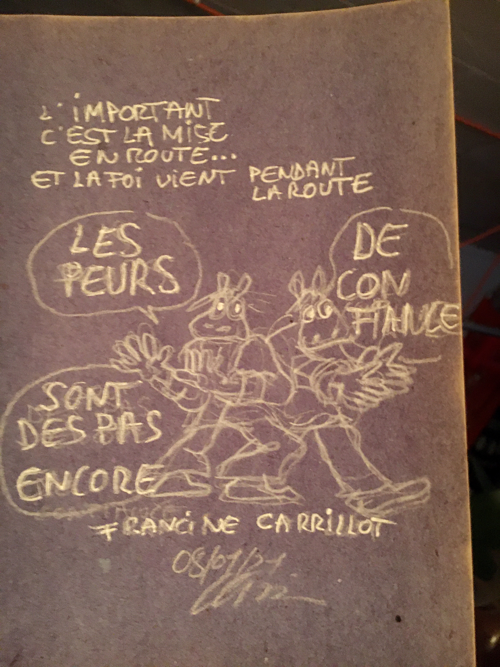 L'IMPORTANT
C'EST LA MISE
EN ROUTE...
ET LA FOI VIENT PENDANT
LA ROUTE
LES
PEURS
SONT
DES PAS
ENCORE
DE
CON
FIANCE
FRANCINE CARRILLOT